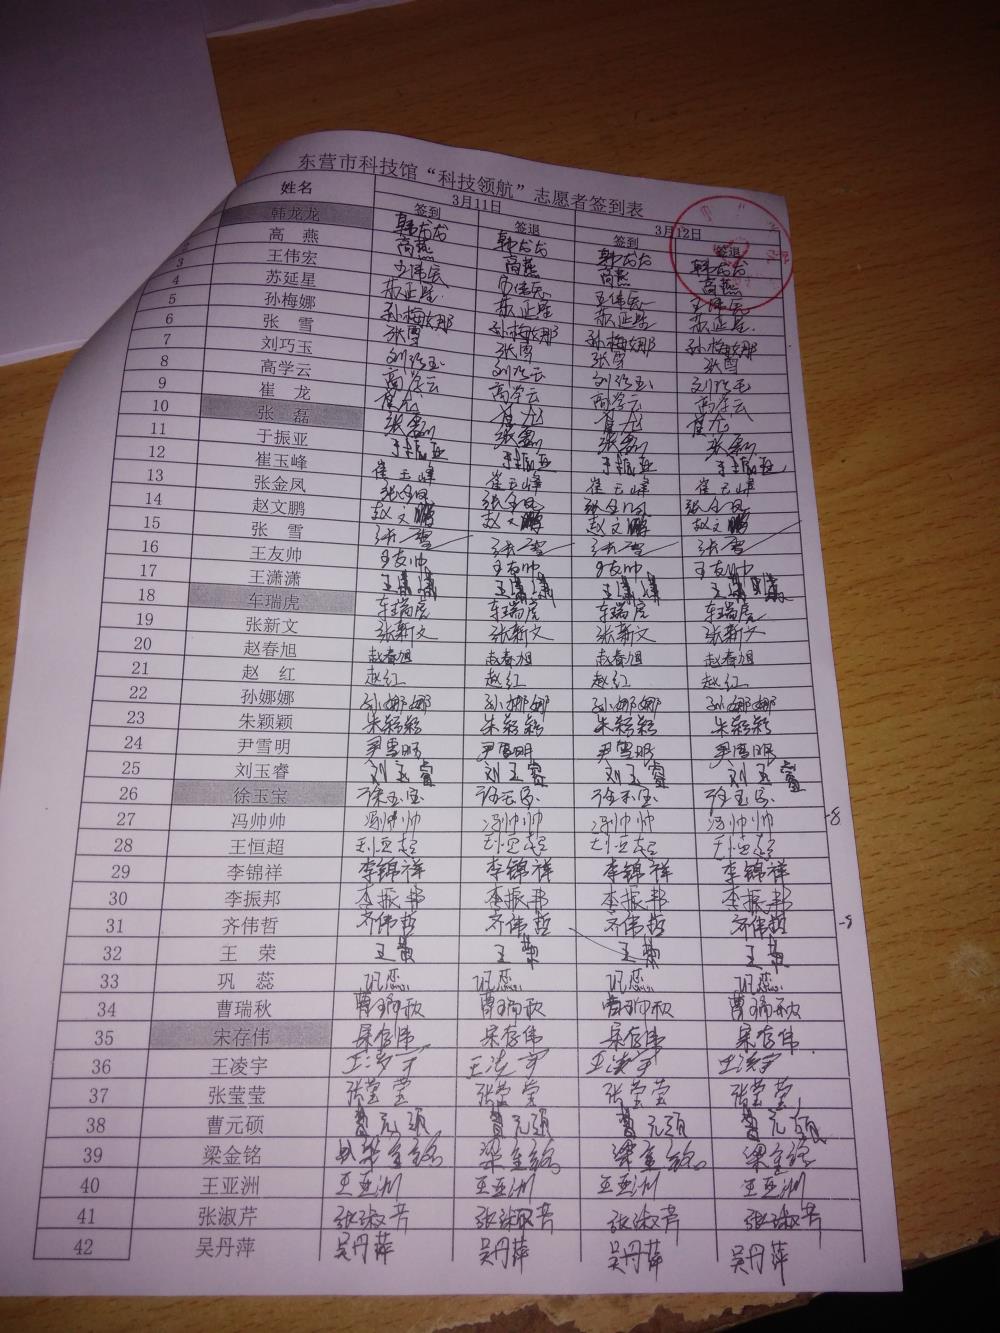 东营市科技馆“科技领航”志愿者签到表
姓名 3月11日 3月12日
签到 签退 签到 签退
韩龙龙 韩龙龙 韩龙龙 韩龙龙 韩龙龙
高 燕 高燕 高燕 高燕 高燕
3 王伟宏 王伟宏 王伟宏 王伟宏 王伟宏
4 苏延星 苏延星 苏延星 苏延星 苏延星
5 孙梅娜 孙梅娜 孙梅娜 孙梅娜 孙梅娜
6 张 雪 张雪 张雪 张雪 张雪
7 刘巧玉 刘巧玉 刘巧玉 刘巧玉 刘巧玉
8 高学云 高学云 高学云 高学云 高学云
9 崔 龙 崔龙 崔龙 崔龙 崔龙
10 张 磊 张磊 张磊 张磊 张磊
11 于振亚 于振亚 于振亚 于振亚 于振亚
12 崔玉峰 崔玉峰 崔玉峰 崔玉峰 崔玉峰
13 张金凤 张金凤 张金凤 张金凤 张金凤
14 赵文鹏 赵文鹏 赵文鹏 赵文鹏 赵文鹏
15 张 雪 张雪 张雪 张雪 张雪
16 王友帅 王友帅 王友帅 王友帅 王友帅
17 王潇潇 王潇潇 王潇潇 王潇潇 王潇潇
18 车瑞虎 车瑞虎 车瑞虎 车瑞虎 车瑞虎
19 张新文 张新文 张新文 张新文 张新文
20 赵春旭 赵春旭 赵春旭 赵春旭 赵春旭
21 赵 红 赵红 赵红 赵红 赵红
22 孙娜娜 孙娜娜 孙娜娜 孙娜娜 孙娜娜
23 朱颖颖 朱颖颖 朱颖颖 朱颖颖 朱颖颖
24 尹雪明 尹雪明 尹雪明 尹雪明 尹雪明
25 刘玉睿 刘玉睿 刘玉睿 刘玉睿 刘玉睿
26 徐玉宝 徐玉宝 徐玉宝 徐玉宝 徐玉宝
27 冯帅帅 冯帅帅 冯帅帅 冯帅帅 冯帅帅 -8
28 王恒超 王恒超 王恒超 王恒超 王恒超
29 李锦祥 李锦祥 李锦祥 李锦祥 李锦祥
30 李振邦 李振邦 李振邦 李振邦 李振邦
31 齐伟哲 齐伟哲 齐伟哲 齐伟哲 齐伟哲
32 王 荣 王荣 王荣 王荣 王荣
33 巩 蕊 巩蕊 巩蕊 巩蕊 巩蕊
34 曹瑞秋 曹瑞秋 曹瑞秋 曹瑞秋 曹瑞秋
35 宋存伟 宋存伟 宋存伟 宋存伟 宋存伟
36 王凌宇 王凌宇 王凌宇 王凌宇 王凌宇
37 张莹莹 张莹莹 张莹莹 张莹莹 张莹莹
38 曹元硕 曹元硕 曹元硕 曹元硕 曹元硕
39 梁金铭 梁金铭 梁金铭 梁金铭 梁金铭
40 王亚洲 王亚洲 王亚洲 王亚洲 王亚洲
41 张淑芹 张淑芹 张淑芹 张淑芹 张淑芹
42 吴丹萍 吴丹萍 吴丹萍 吴丹萍 吴丹萍